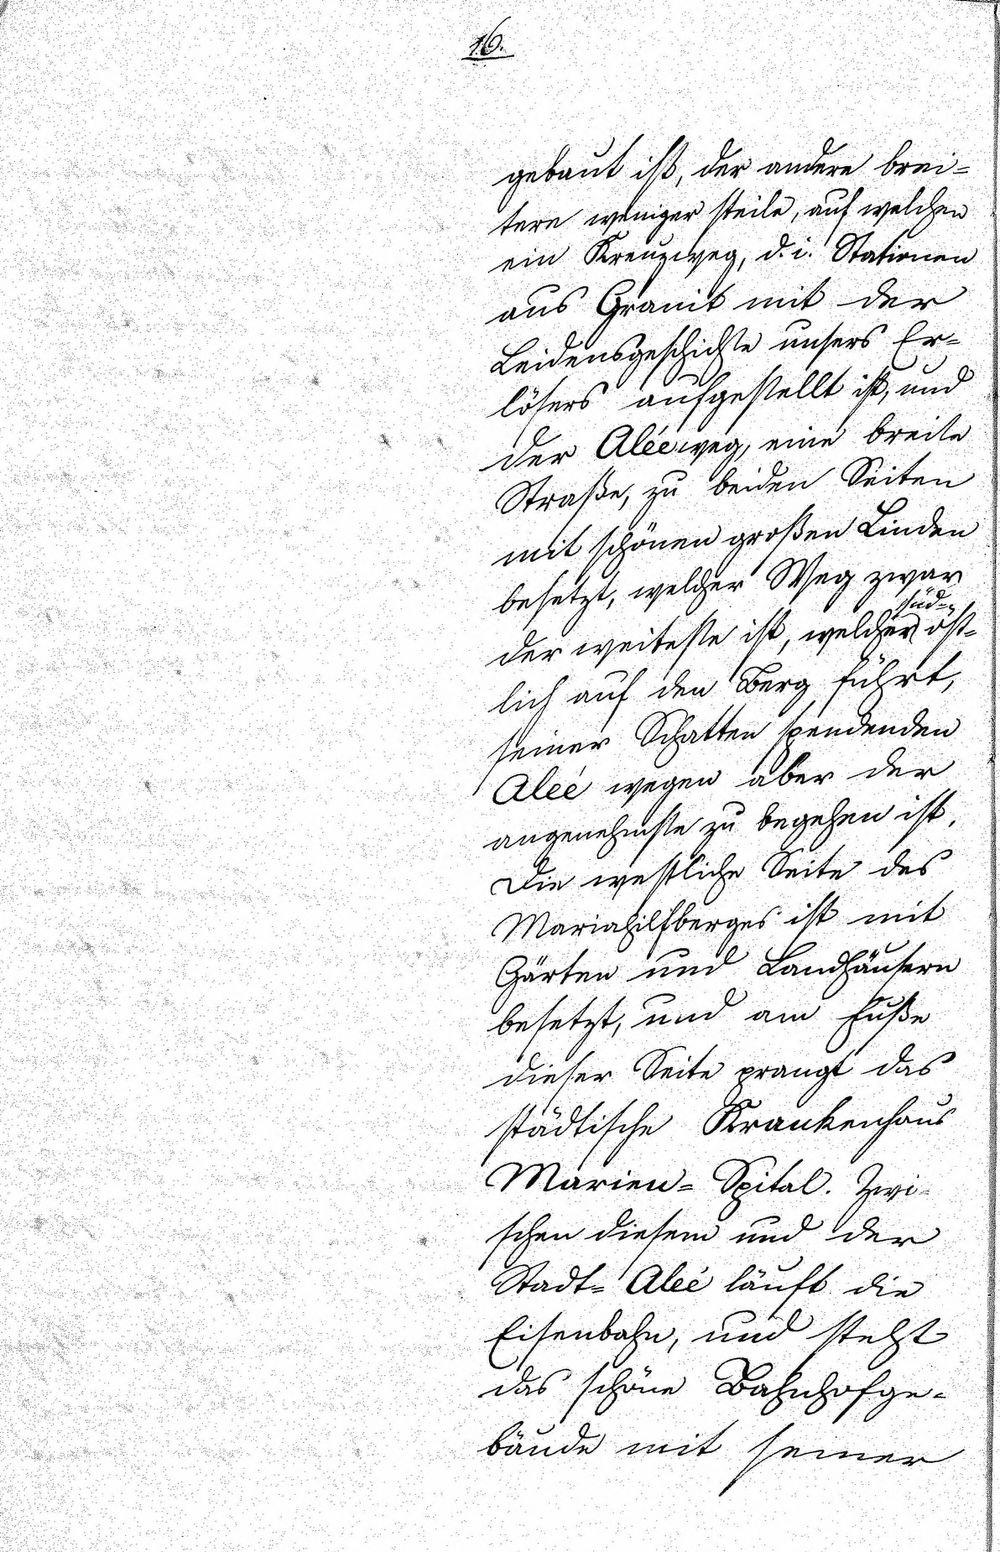 16.
gebaut ist, der andere brei=
tere weniger steile, auf welchen
ein Kreuzweg, d. i. Stationen
aus Granit mit der
Leidensgeschichte unsers Er=
lösers aufgestellt ist, und
der Aléeweg, eine breite
Straße, zu beiden Seiten
mit schönen großen Linden
besetzt, welcher Weg zwar
süd=
der weiteste ist, welcher öst=
lich auf den Berg führt,
seiner Schatten spendenden
Aleé wegen aber der
angenehmste zu begehen ist.
Die westliche Seite des
Mariahilfberges ist mit
Gärten und Landhäusern
besetzt, und am Fuße
dieser Seite prangt das
städtische Krankenhaus
Marien= Spital. Zwi=
schen diesem und der
Stadt= Aleé läuft die
Eisenbahn, und steht
das schöne Bahnhofge=
bäude mit seiner